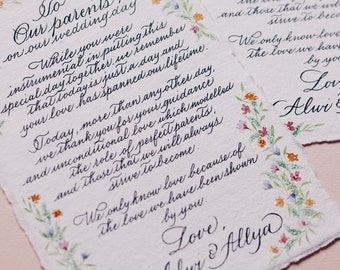 To
Our parents
on our wedding day
While you were
instrumental in putting this
special day together, we remember
that today is just a day and
your love has spanned our lifetime.
Today, more than any other day,
we thank you for your guidance
and unconditional love which modelled
the role of perfect parents,
and those that we will always
strive to become
We only know love because of
the love we have been shown
by you.
Love,
& Allya
and those that we will
strive to become
We only know love because
the love we have been
by you.
Love,
Alwi &